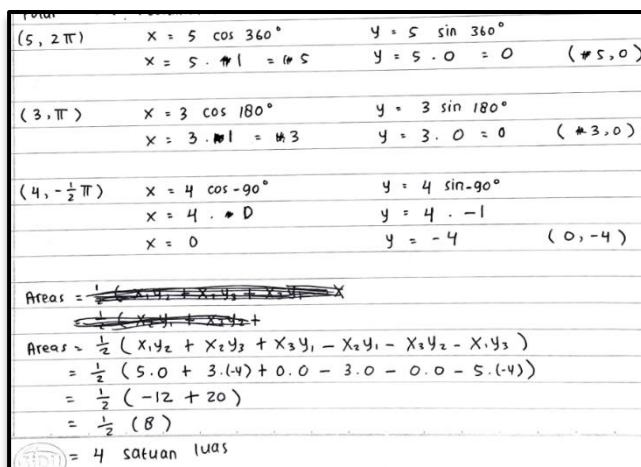 (5, 2π) x = 5 cos 360° y = 5 sin 360°
x = 5 . 1 = 5 y = 5 . 0 = 0 (5,0)
(3, π) x = 3 cos 180° y = 3 sin 180°
x = 3 . 1 = 3 y = 3 . 0 = 0 (3,0)
(4, -½π) x = 4 cos -90° y = 4 sin -90°
x = 4 . 0 y = 4 . -1
x = 0 y = -4 (0,-4)
Areas =
Areas = ½ (x₁y₂ + x₂y₃ + x₃y₁ - x₂y₁ - x₃y₂ - x₁y₃)
= ½ (5.0 + 3.(-4) + 0.0 - 3.0 - 0.0 - 5.(-4))
= ½ (-12 + 20)
= ½ (8)
= 4 satuan luas